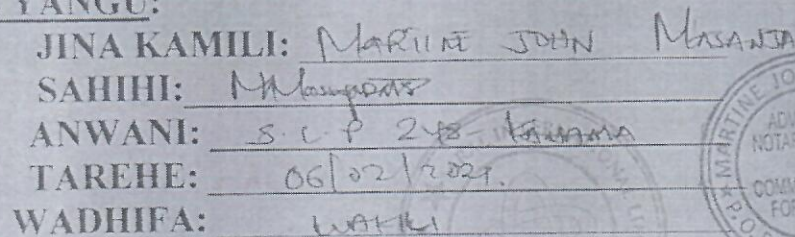 YANGU:
JINA KAMILI: MARTINE JOHN MASANJA
SAHIHI:
ANWANI: S.L.P 248 - KAHAMA
TAREHE: 06/02/2024.
WADHIFA: WAKILI
MARTINE JO
NOTAR
COMM
FOR
P.O